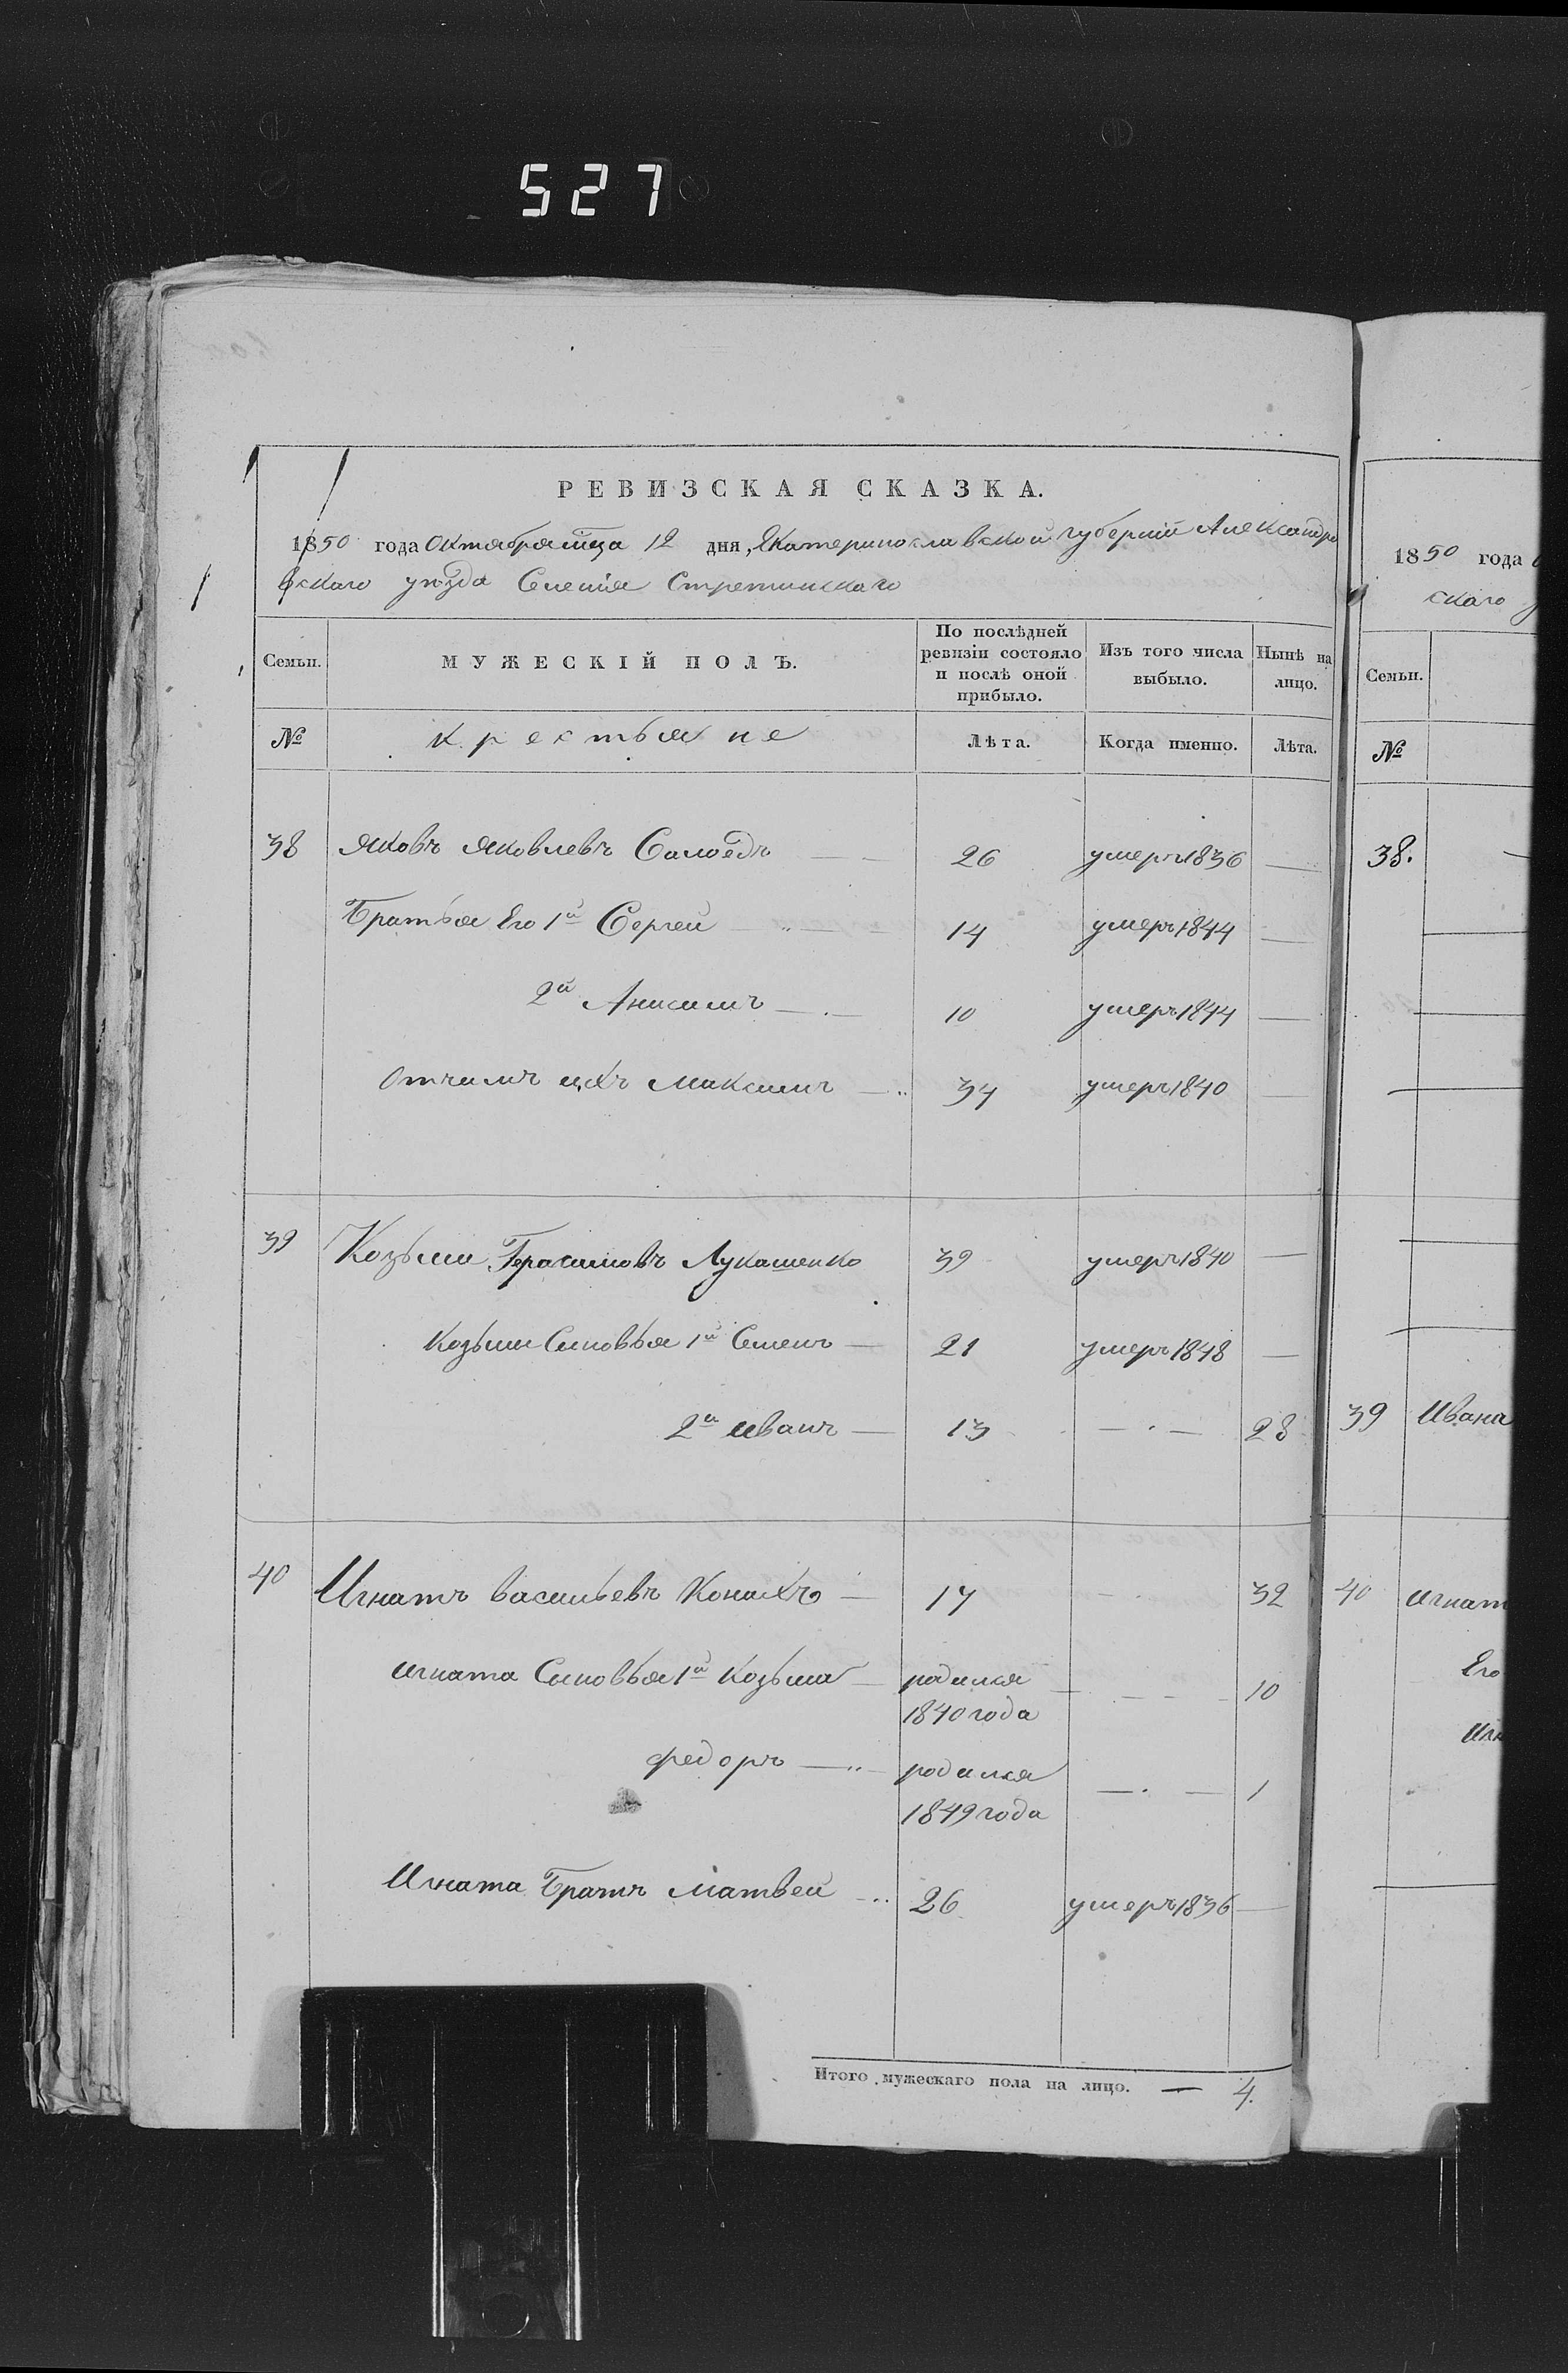 527
РЕВИЗСКАЯ СКАЗКА.
1850 года Октября мца 12 дня, Екатеринославской губерніи Александро
вскаго уѣзда Селенія Стретинскаго
Семьи. МУЖЕСКІЙ ПОЛЪ. По послѣдней ревизіи состояло и послѣ оной прибыло. Изъ того числа выбыло. Нынѣ на лицо.
№ крестьяне Лѣта. Когда именно. Лѣта.
38 Яковъ Яковлевъ Самоедъ — 26 умеръ 1836 —
Братья Его 1й Сергей — 14 умеръ 1844 —
2й Анисимъ — 10 умеръ 1844 —
Отчимъ ихъ Максимъ — 34 умеръ 1840 —
39 Козьма Герасимовъ Лукашенко 39 умеръ 1840 —
Козьми Сыновья 1й Семенъ — 21 умеръ 1848 —
2й иванъ — 13 — 28
40 Игнатъ васильевъ Конахъ — 17 — 32
игната Сыновья 1й Козьма — родился — 10
1840 года
федоръ — родился — 1
1849 года
Игната Братъ Матвей 26 умеръ 1836 —
Итого мужескаго пола на лицо. — 4.
1850 года
скаго
Семьи.
№
38.
39 Ивана
40 игнат
Его